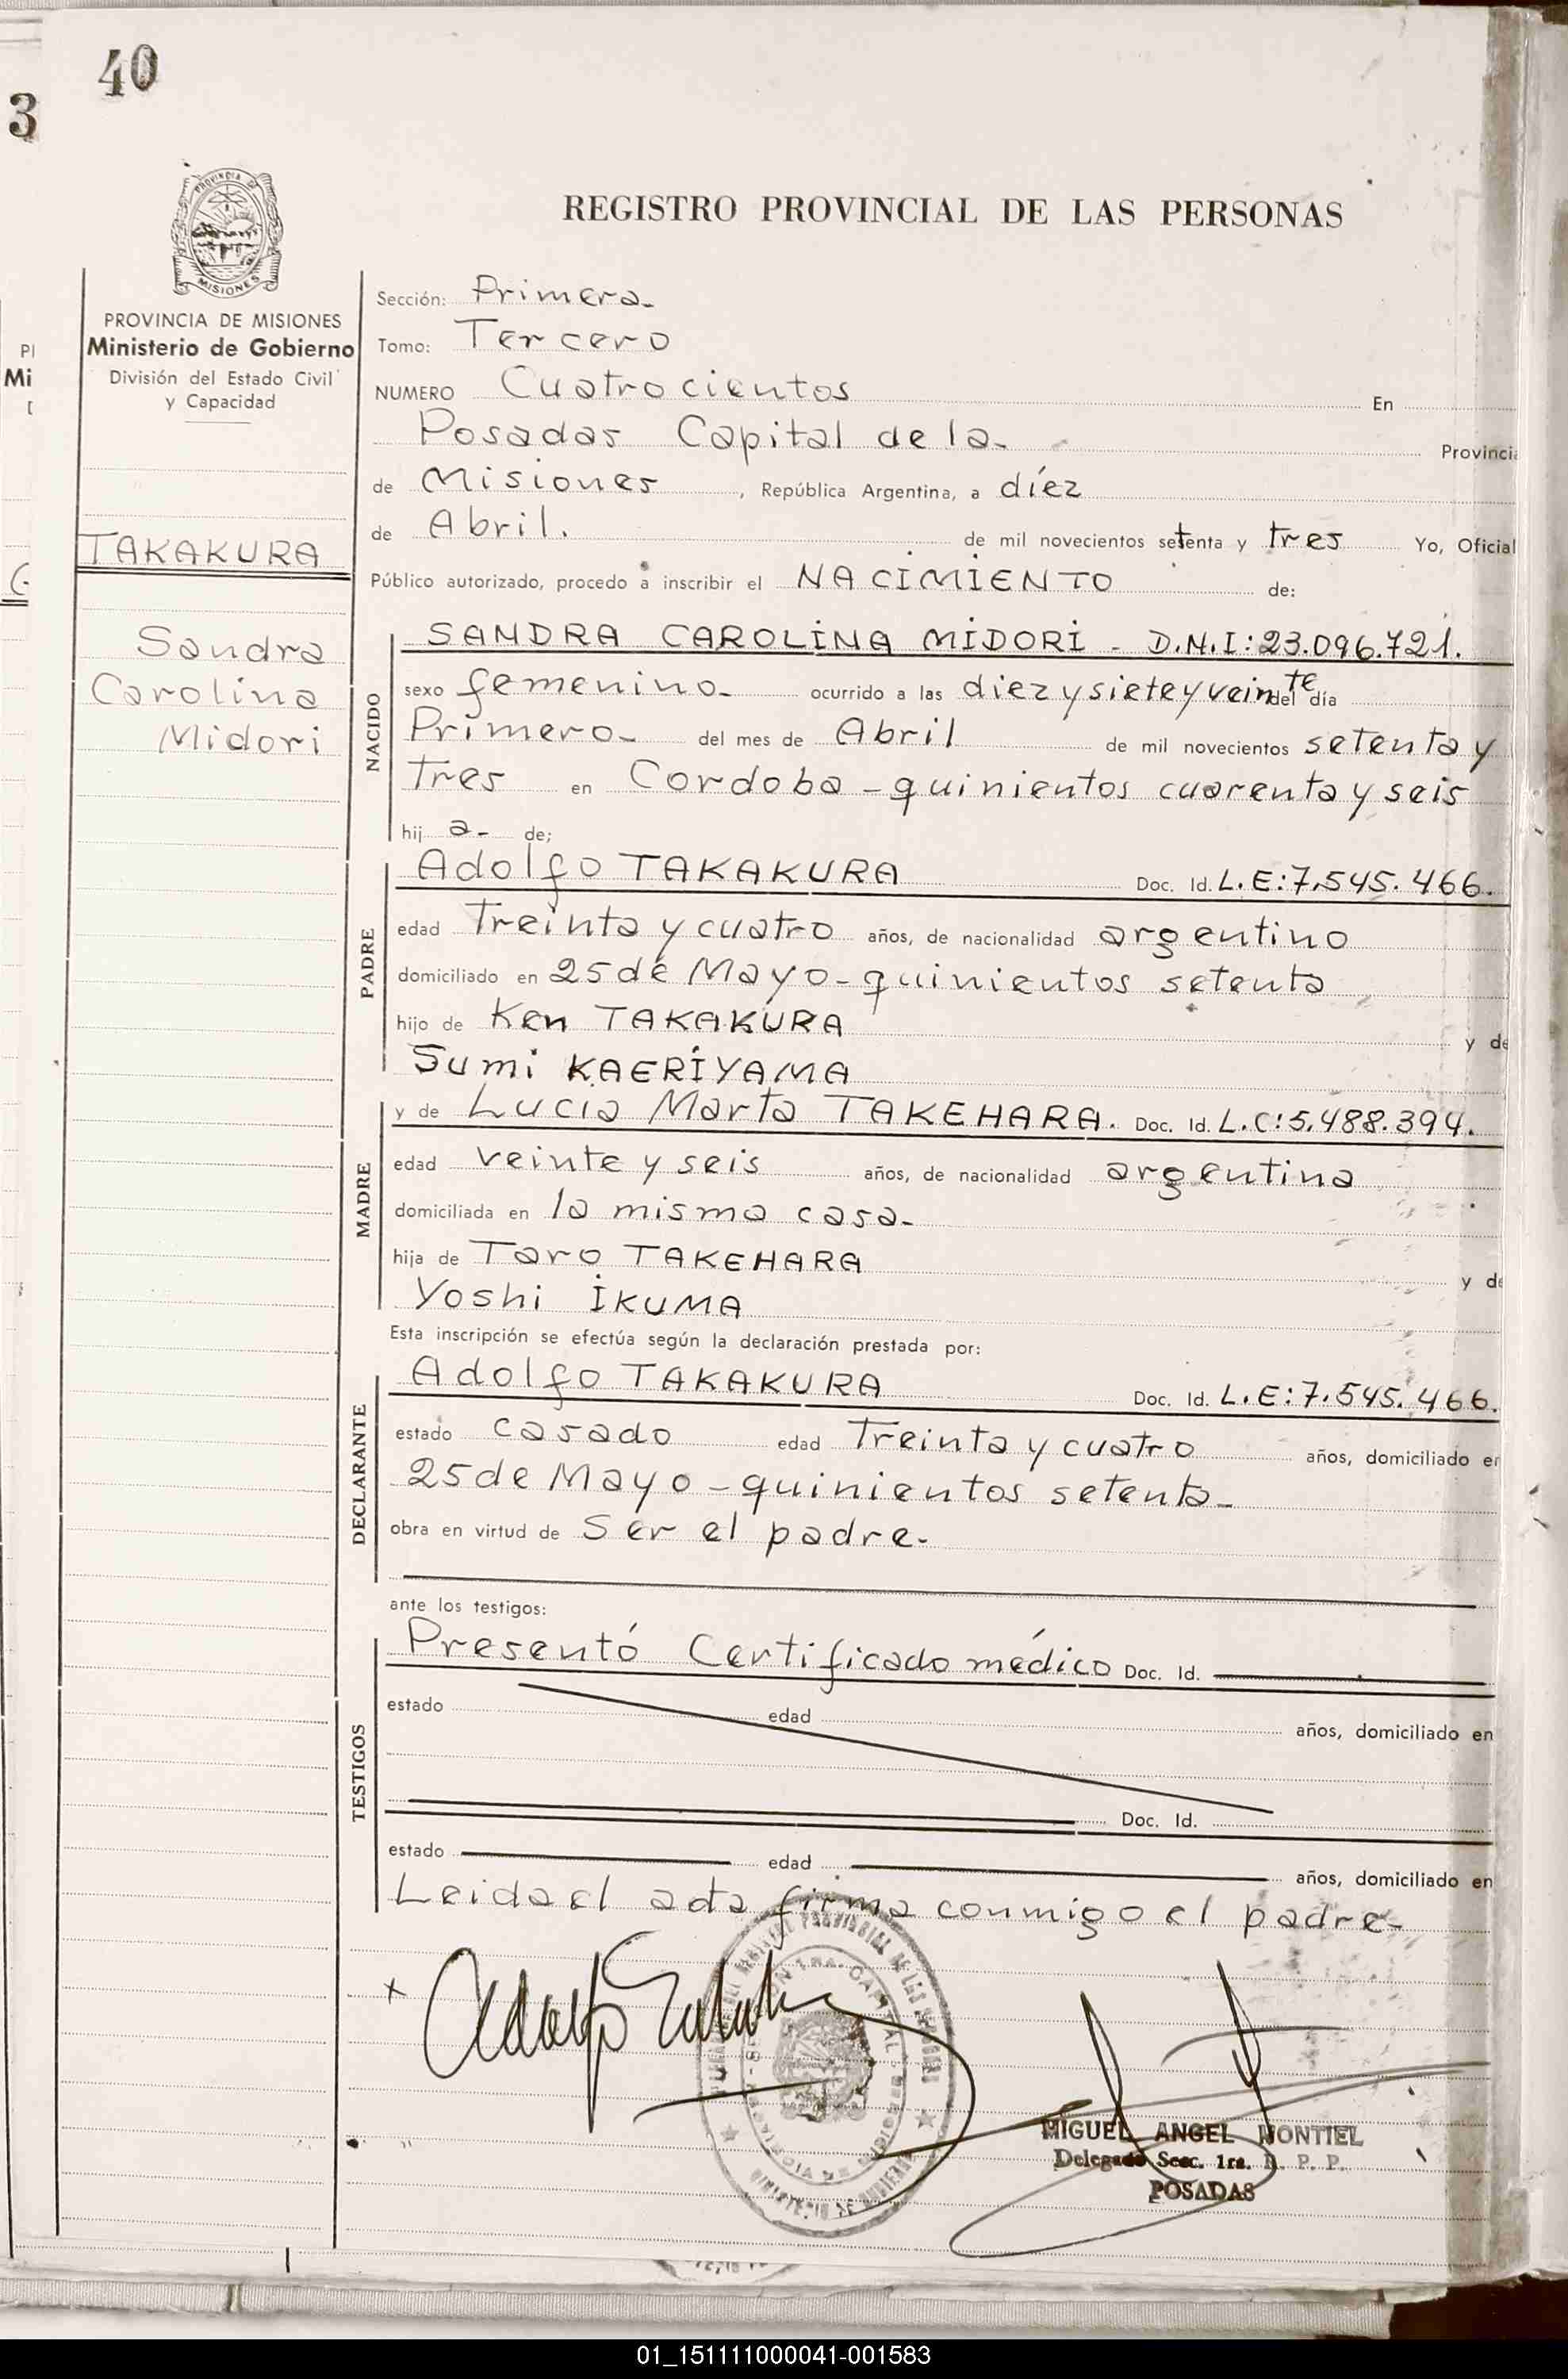 40
3
REGISTRO PROVINCIAL DE LAS PERSONAS
PROVINCIA DE
MISIONES
PROVINCIA DE MISIONES
Ministerio de Gobierno
División del Estado Civil
y Capacidad
TAKAKURA
Sandra
Carolina
Midori
Sección: Primera-
Tomo: Tercero
NUMERO Cuatrocientos En
Posadas Capital de la- Provincia
de Misiones, República Argentina, a díez
de Abril. de mil novecientos setenta y tres Yo, Oficial
Público autorizado, procedo a inscribir el NACIMIENTO de:
NACIDO
SANDRA CAROLINA MIDORI - D.N.I:23.096.721.
sexo femenino- ocurrido a las diez y siete y veinte del día
Primero- del mes de Abril de mil novecientos setenta y
tres en Cordoba - quinientos cuarenta y seis
hij a- de;
PADRE
Adolfo TAKAKURA Doc. Id. L.E:7.545.466.
edad Treinta y cuatro años, de nacionalidad argentino
domiciliado en 25 de Mayo - quinientos setenta
hijo de Ken TAKAKURA y de
Sumi KAERIYAMA
MADRE
y de Lucia Marta TAKEHARA. Doc. Id. L.C:5.488.394.
edad veinte y seis años, de nacionalidad argentina
domiciliada en la misma casa-
hija de Taro TAKEHARA y de
Yoshi IKUMA
Esta inscripción se efectúa según la declaración prestada por:
DECLARANTE
Adolfo TAKAKURA Doc. Id. L.E:7.545.466.
estado casado edad Treinta y cuatro años, domiciliado en
25 de Mayo - quinientos setenta-
obra en virtud de Ser el padre-
ante los testigos:
TESTIGOS
Presentó Certificado médico Doc. Id.
estado edad años, domiciliado en
Doc. Id.
estado edad años, domiciliado en
Leida el acta firma conmigo el padre-
x Adolfo
MIGUEL ANGEL MONTIEL
Delegado Secc. 1ra. R. P. P.
POSADAS
01_151111000041-001583